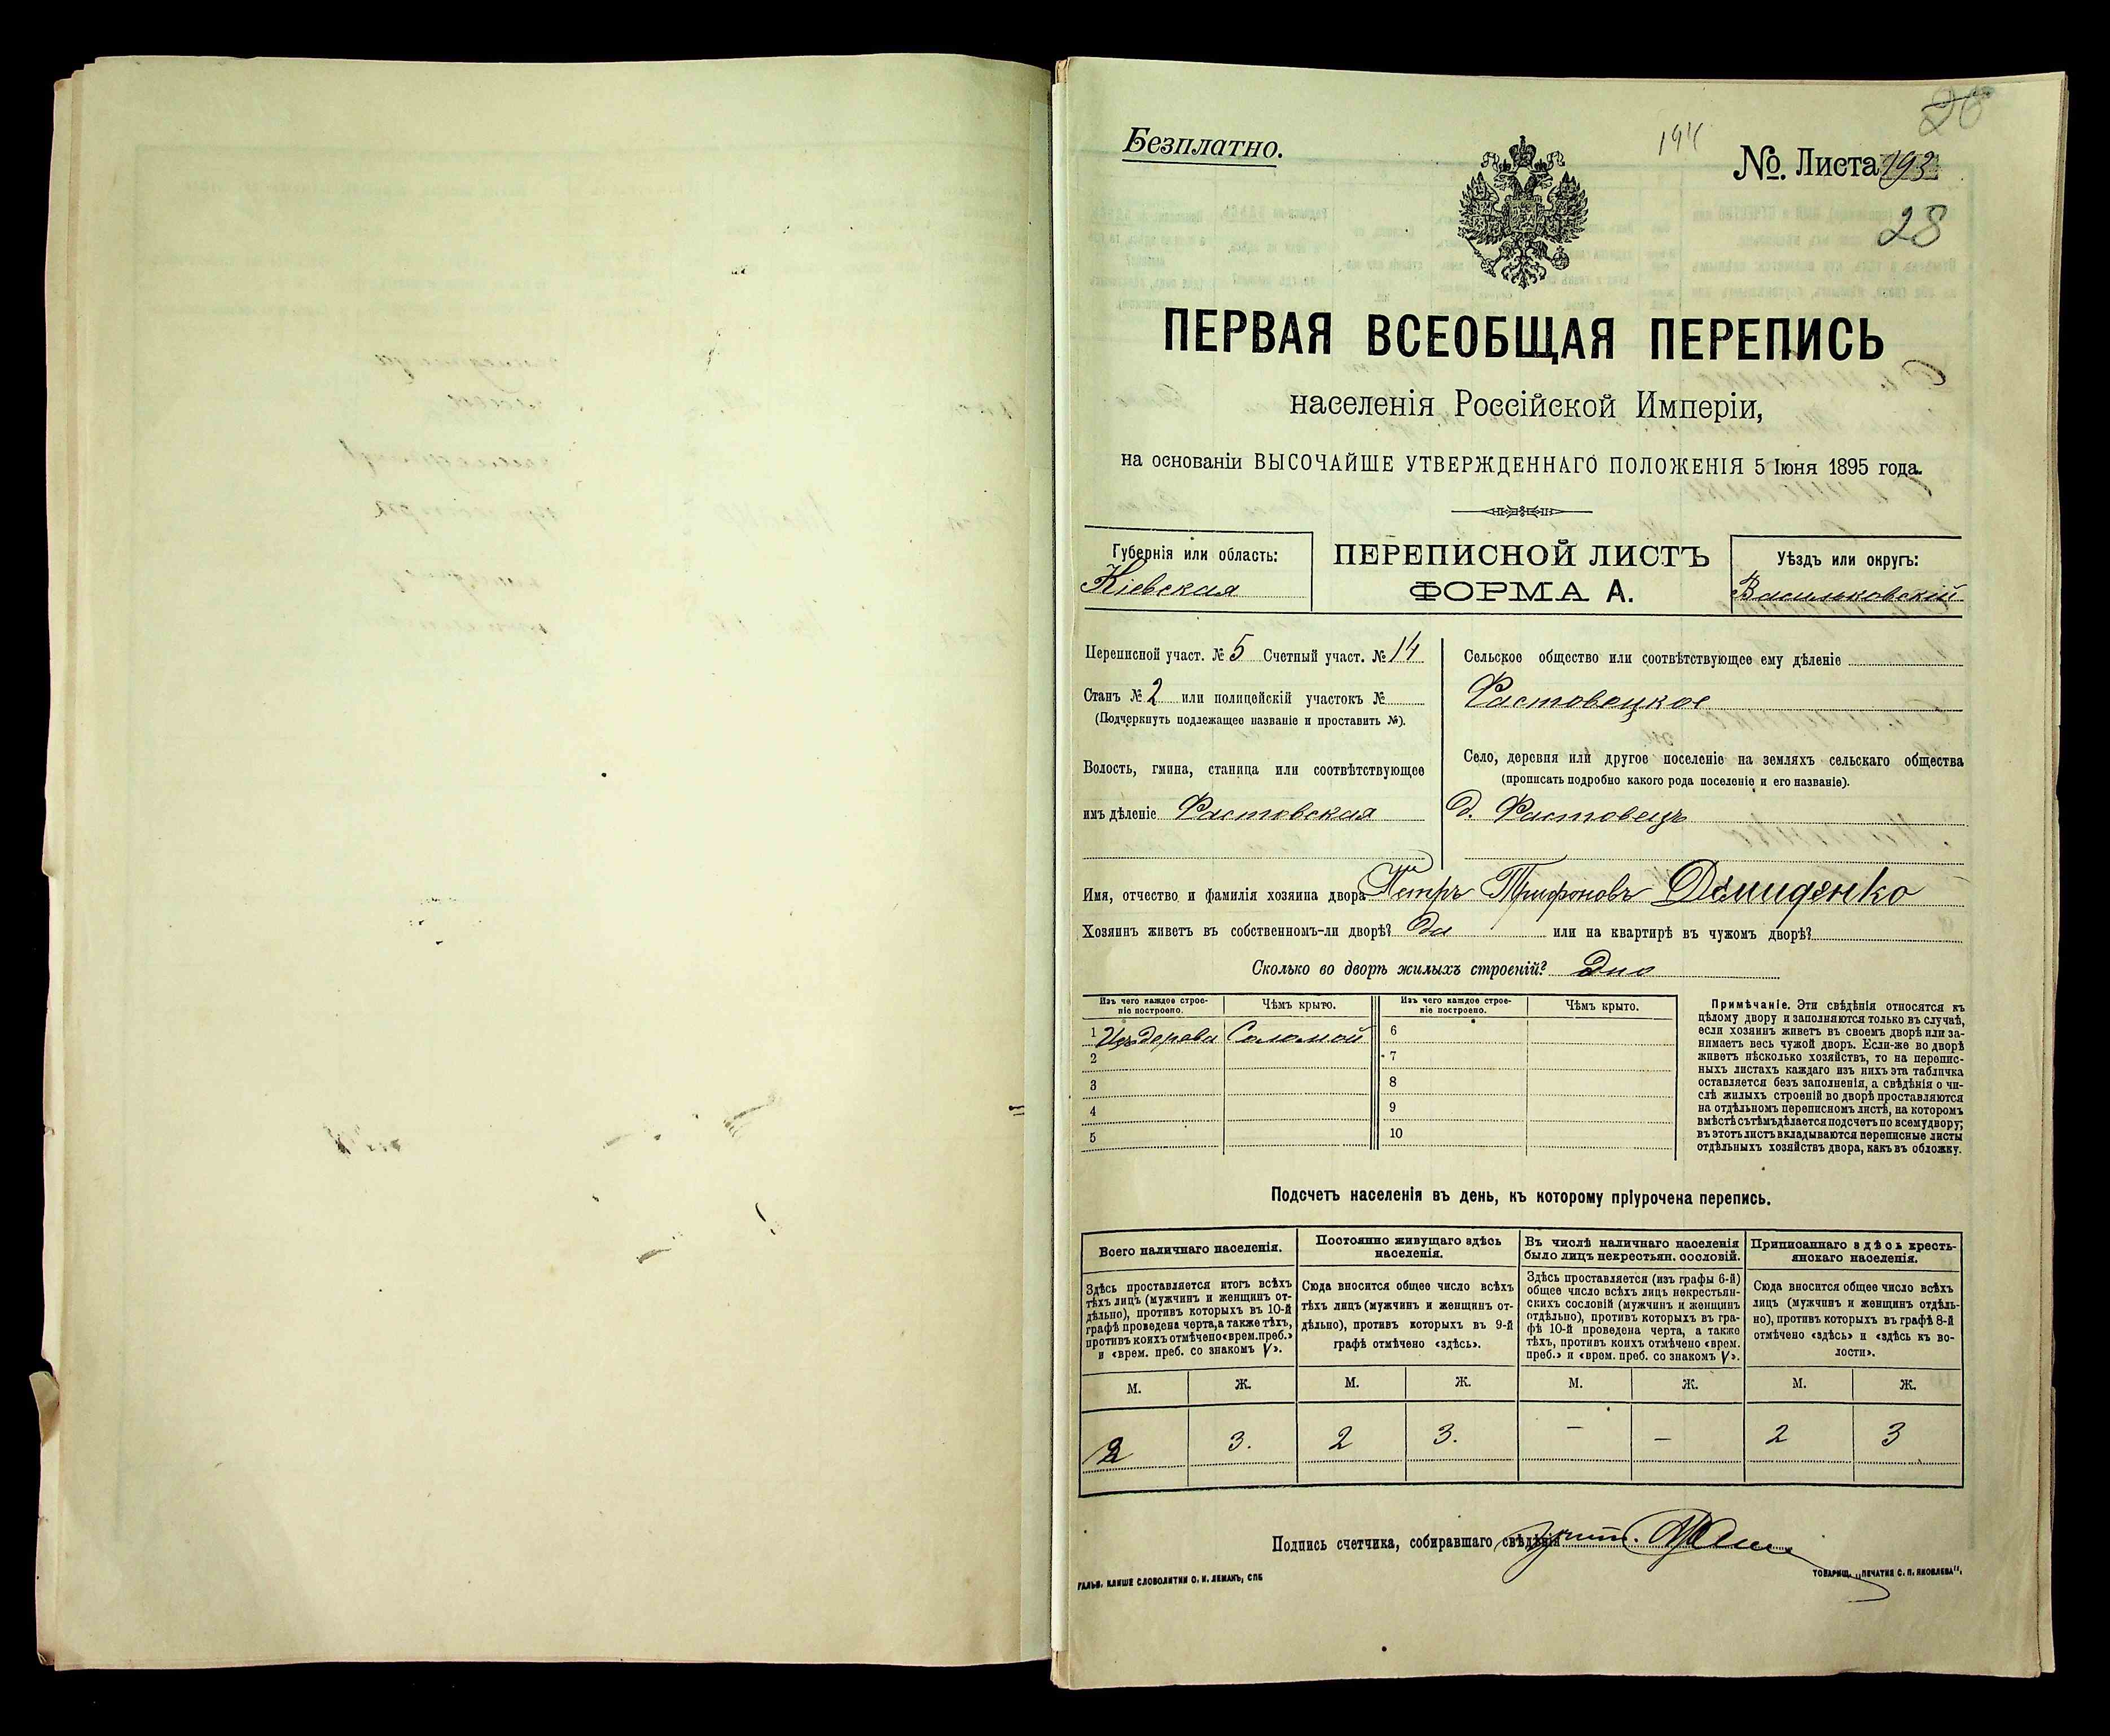 28
Безплатно.
194
№. Листа 193
28
ПЕРВАЯ ВСЕОБЩАЯ ПЕРЕПИСЬ
населенія Россійской Имперіи,
на основаніи ВЫСОЧАЙШЕ УТВЕРЖДЕННАГО ПОЛОЖЕНІЯ 5 Іюня 1895 года.
Губернія или область:
Кіевская
ПЕРЕПИСНОЙ ЛИСТЪ
ФОРМА А.
Уѣздъ или округъ:
Васильковскій
Переписной участ. № 5 Счетный участ. № 14
Станъ № 2 или полицейскій участокъ №
(Подчеркнуть подлежащее названіе и проставить №).
Волость, гмина, станица или соотвѣтствующее
имъ дѣленіе Фастовская
Сельское общество или соотвѣтствующее ему дѣленіе
Фастовецкое
Село, деревня или другое поселеніе на земляхъ сельскаго общества
(прописать подробно какого рода поселеніе и его названіе).
д. Фастовецъ
Имя, отчество и фамилія хозяина двора Петръ Трифоновъ Демиденко
Хозяинъ живетъ въ собственномъ-ли дворѣ? Да или на квартирѣ въ чужомъ дворѣ?
Сколько во дворѣ жилыхъ строеній? Одно
Изъ чего каждое строе-
ніе построено.
Чѣмъ крыто.
Изъ чего каждое строе-
ніе построено.
Чѣмъ крыто.
1 Изъ дерева Соломой 6
2 7
3 8
4 9
5 10
Примѣчаніе. Эти свѣдѣнія относятся къ
цѣлому двору и заполняются только въ случаѣ,
если хозяинъ живетъ въ своемъ дворѣ или за-
нимаетъ весь чужой дворъ. Если-же во дворѣ
живетъ нѣсколько хозяйствъ, то на перепис-
ныхъ листахъ каждаго изъ нихъ эта табличка
оставляется безъ заполненія, а свѣдѣнія о чи-
слѣ жилыхъ строеній во дворѣ проставляются
на отдѣльномъ переписномъ листѣ, на которомъ
вмѣстѣ съ тѣмъ дѣлается подсчетъ по всему двору;
въ этотъ листъ вкладываются переписные листы
отдѣльныхъ хозяйствъ двора, какъ въ обложку.
Подсчетъ населенія въ день, къ которому пріурочена перепись.
Всего наличнаго населенія.
Здѣсь проставляется итогъ всѣхъ
тѣхъ лицъ (мужчинъ и женщинъ от-
дѣльно), противъ которыхъ въ 10-й
графѣ проведена черта, а также тѣхъ,
противъ коихъ отмѣчено «врем. преб.»
и «врем. преб. со знакомъ V».
Постоянно живущаго здѣсь
населенія.
Сюда вносится общее число всѣхъ
тѣхъ лицъ (мужчинъ и женщинъ от-
дѣльно), противъ которыхъ въ 9-й
графѣ отмѣчено «здѣсь».
Въ числѣ наличнаго населенія
было лицъ некрестьян. сословій.
Здѣсь проставляется (изъ графы 6-й)
общее число всѣхъ лицъ некрестьян-
скихъ сословій (мужчинъ и женщинъ
отдѣльно), противъ которыхъ въ гра-
фѣ 10-й проведена черта, а также
тѣхъ, противъ коихъ отмѣчено «врем.
преб.» и «врем. преб. со знакомъ V».
Приписаннаго здѣсь кресть-
янскаго населенія.
Сюда вносится общее число всѣхъ
лицъ (мужчинъ и женщинъ отдѣль-
но), противъ которыхъ въ графѣ 8-й
отмѣчено «здѣсь» и «здѣсь къ во-
лости».
М. Ж. М. Ж. М. Ж. М. Ж.
2 3. 2 3. – – 2 3
Подпись счетчика, собиравшаго свѣдѣнія
ГАЛЬВ. КЛИШЕ СЛОВОЛИТНИ О. И. ЛЕМАНЪ, СПБ
ТОВАРИЩ. „ПЕЧАТНЯ С. П. ЯКОВЛЕВА".